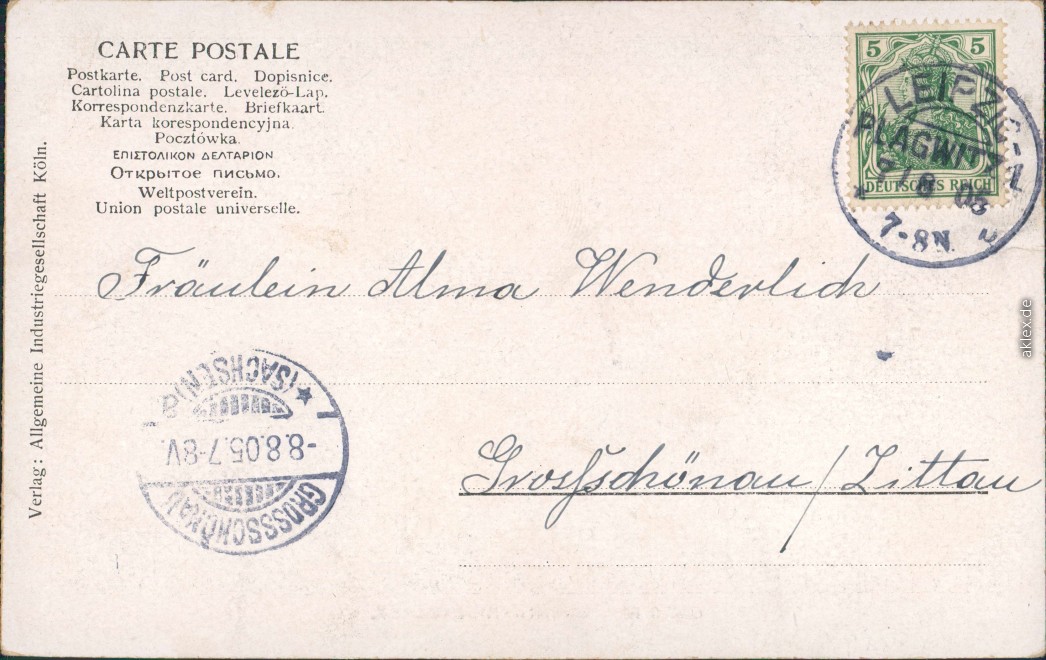 CARTE POSTALE
Postkarte. Post card. Dopisnice.
Cartolina postale. Levelező-Lap.
Korrespondenzkarte. Briefkaart.
Karta korespondencyjna.
Pocztówka.
ΕΠΙΣΤΟΛΙΚΟΝ ΔΕΛΤΑΡΙΟΝ
Открытое письмо.
Weltpostverein.
Union postale universelle.
5 5
DEUTSCHES REICH
LEIPZIG-
PLAGWITZ
7-8N.
Verlag: Allgemeine Industriegesellschaft Köln.
Fräulein Alma Wenderlich
(SACHSEN)
-8.8.05.7-8V.
GROSSSCHÖNAU
Grofsschönau/Zittau
aklex.de